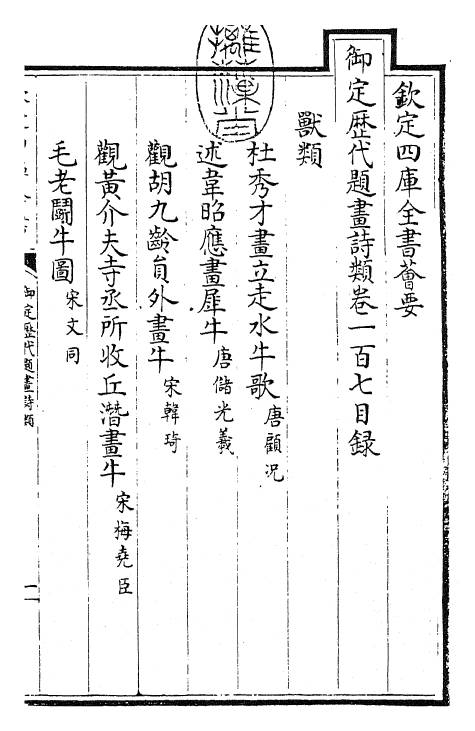 欽定四庫全書薈要
御定歴代題畫詩類卷一百七目録
獸類
杜秀才畫立走水牛歌 唐顧况
述韋昭應畫犀牛 唐儲光羲
觀胡九齡員外畫牛 宋韓琦
觀黃介夫寺丞所收丘潛畫牛 宋梅堯臣
毛老鬬牛圖 宋文同
御定歴代題畫詩類